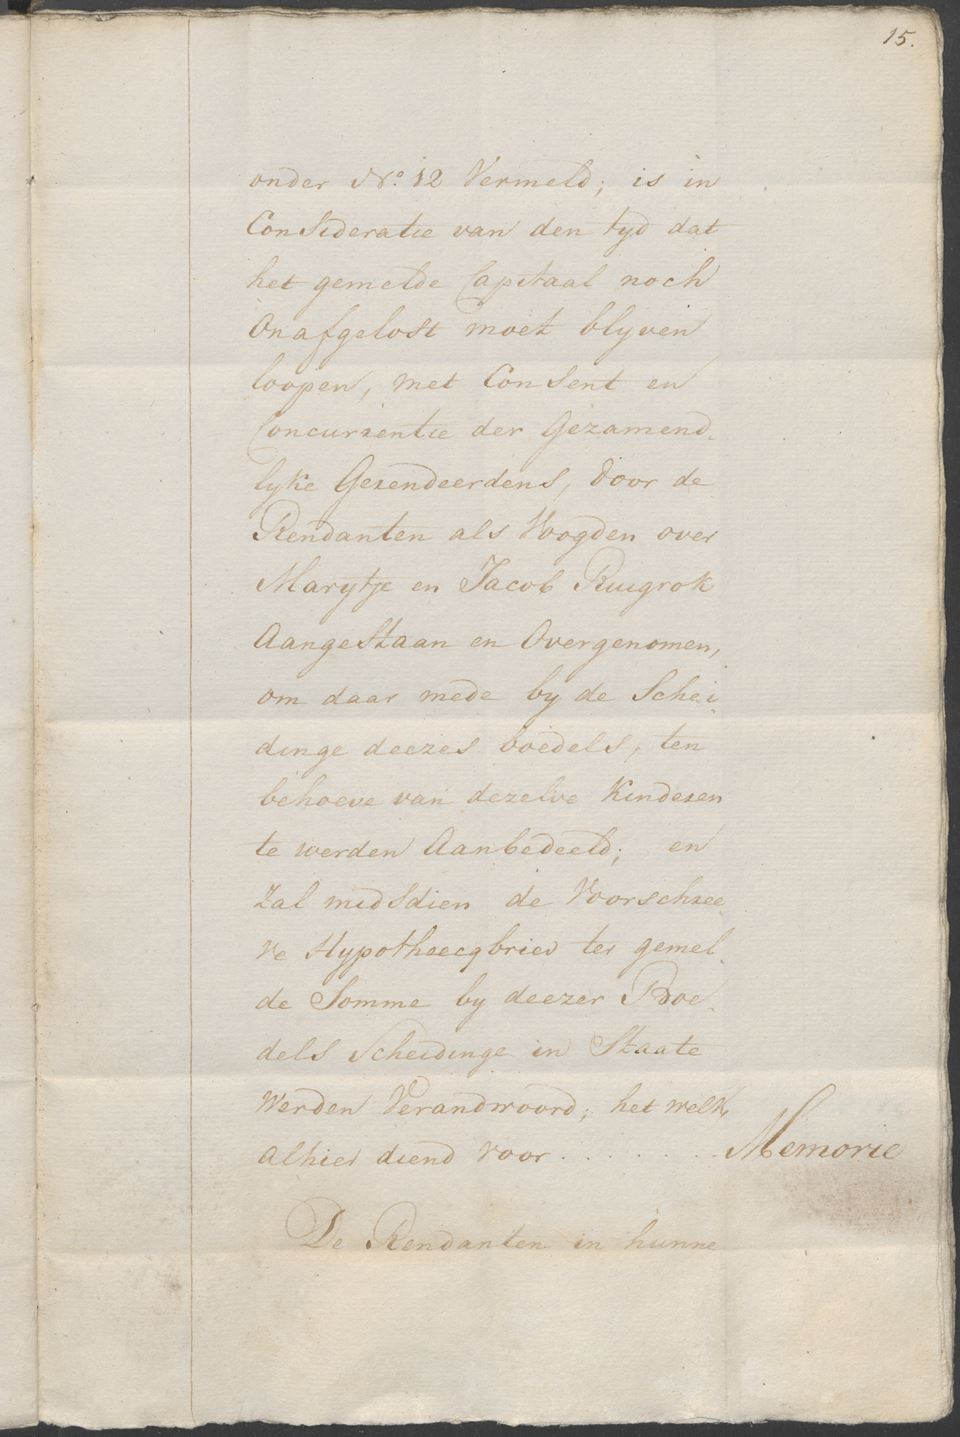 15.
onder No. 12 Vermeld; is in
Consideratie van den tyd dat
het gemelde Capitaal noch
Onafgelost moet blyven
loopen, met Consent en
Concurrentie der Gezamend-
lyke Gerendeerdens, door de
Rendanten als Voogden over
Marytje en Jacob Ruigrok
Aangestaan en Overgenomen,
om daar mede by de Schei-
dinge deezes boedels, ten
behoeve van dezelve Kinderen
te werden Aanbedeeld; en
Zal midsdien de Voorschree
ve Hypotheecqbrief ter gemel-
de Somme by deezer Boe-
dels Scheidinge in Staate
werden Verandwoord; het welk
alhier diend voor ........ Memorie
De Rendanten in hunne